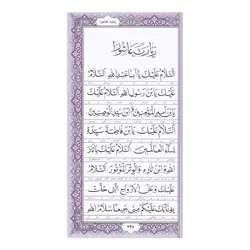 زیارت عاشورا
زیارت عاشورا
اَلسَّلامُ عَلَیْکَ یا اَباعَبْدِاللّٰهِ اَلسَّلامُ
عَلَیْکَ یَابْنَ رَسُولِ اللّٰهِ اَلسَّلامُ عَلَیْکَ
یَابْنَ اَمیرِالْمُؤْمِنینَ وَابْنَ سَیِّدِ
الْوَصِیّینَ اَلسَّلامُ عَلَیْکَ یَابْنَ فاطِمَةَ سَیِّدَةِ
نِساءِ الْعالَمینَ اَلسَّلامُ عَلَیْکَ یا ثارَ
اللّٰهِ وَابْنَ ثارِهِ وَالْوِتْرَ الْمَوْتُورَ اَلسَّلامُ
عَلَیْکَ وَعَلَی الْاَرْواحِ الَّتی حَلَّتْ
بِفِنائِکَ عَلَیْکُمْ مِنّی جَمیعاً سَلامُ اللّٰهِ